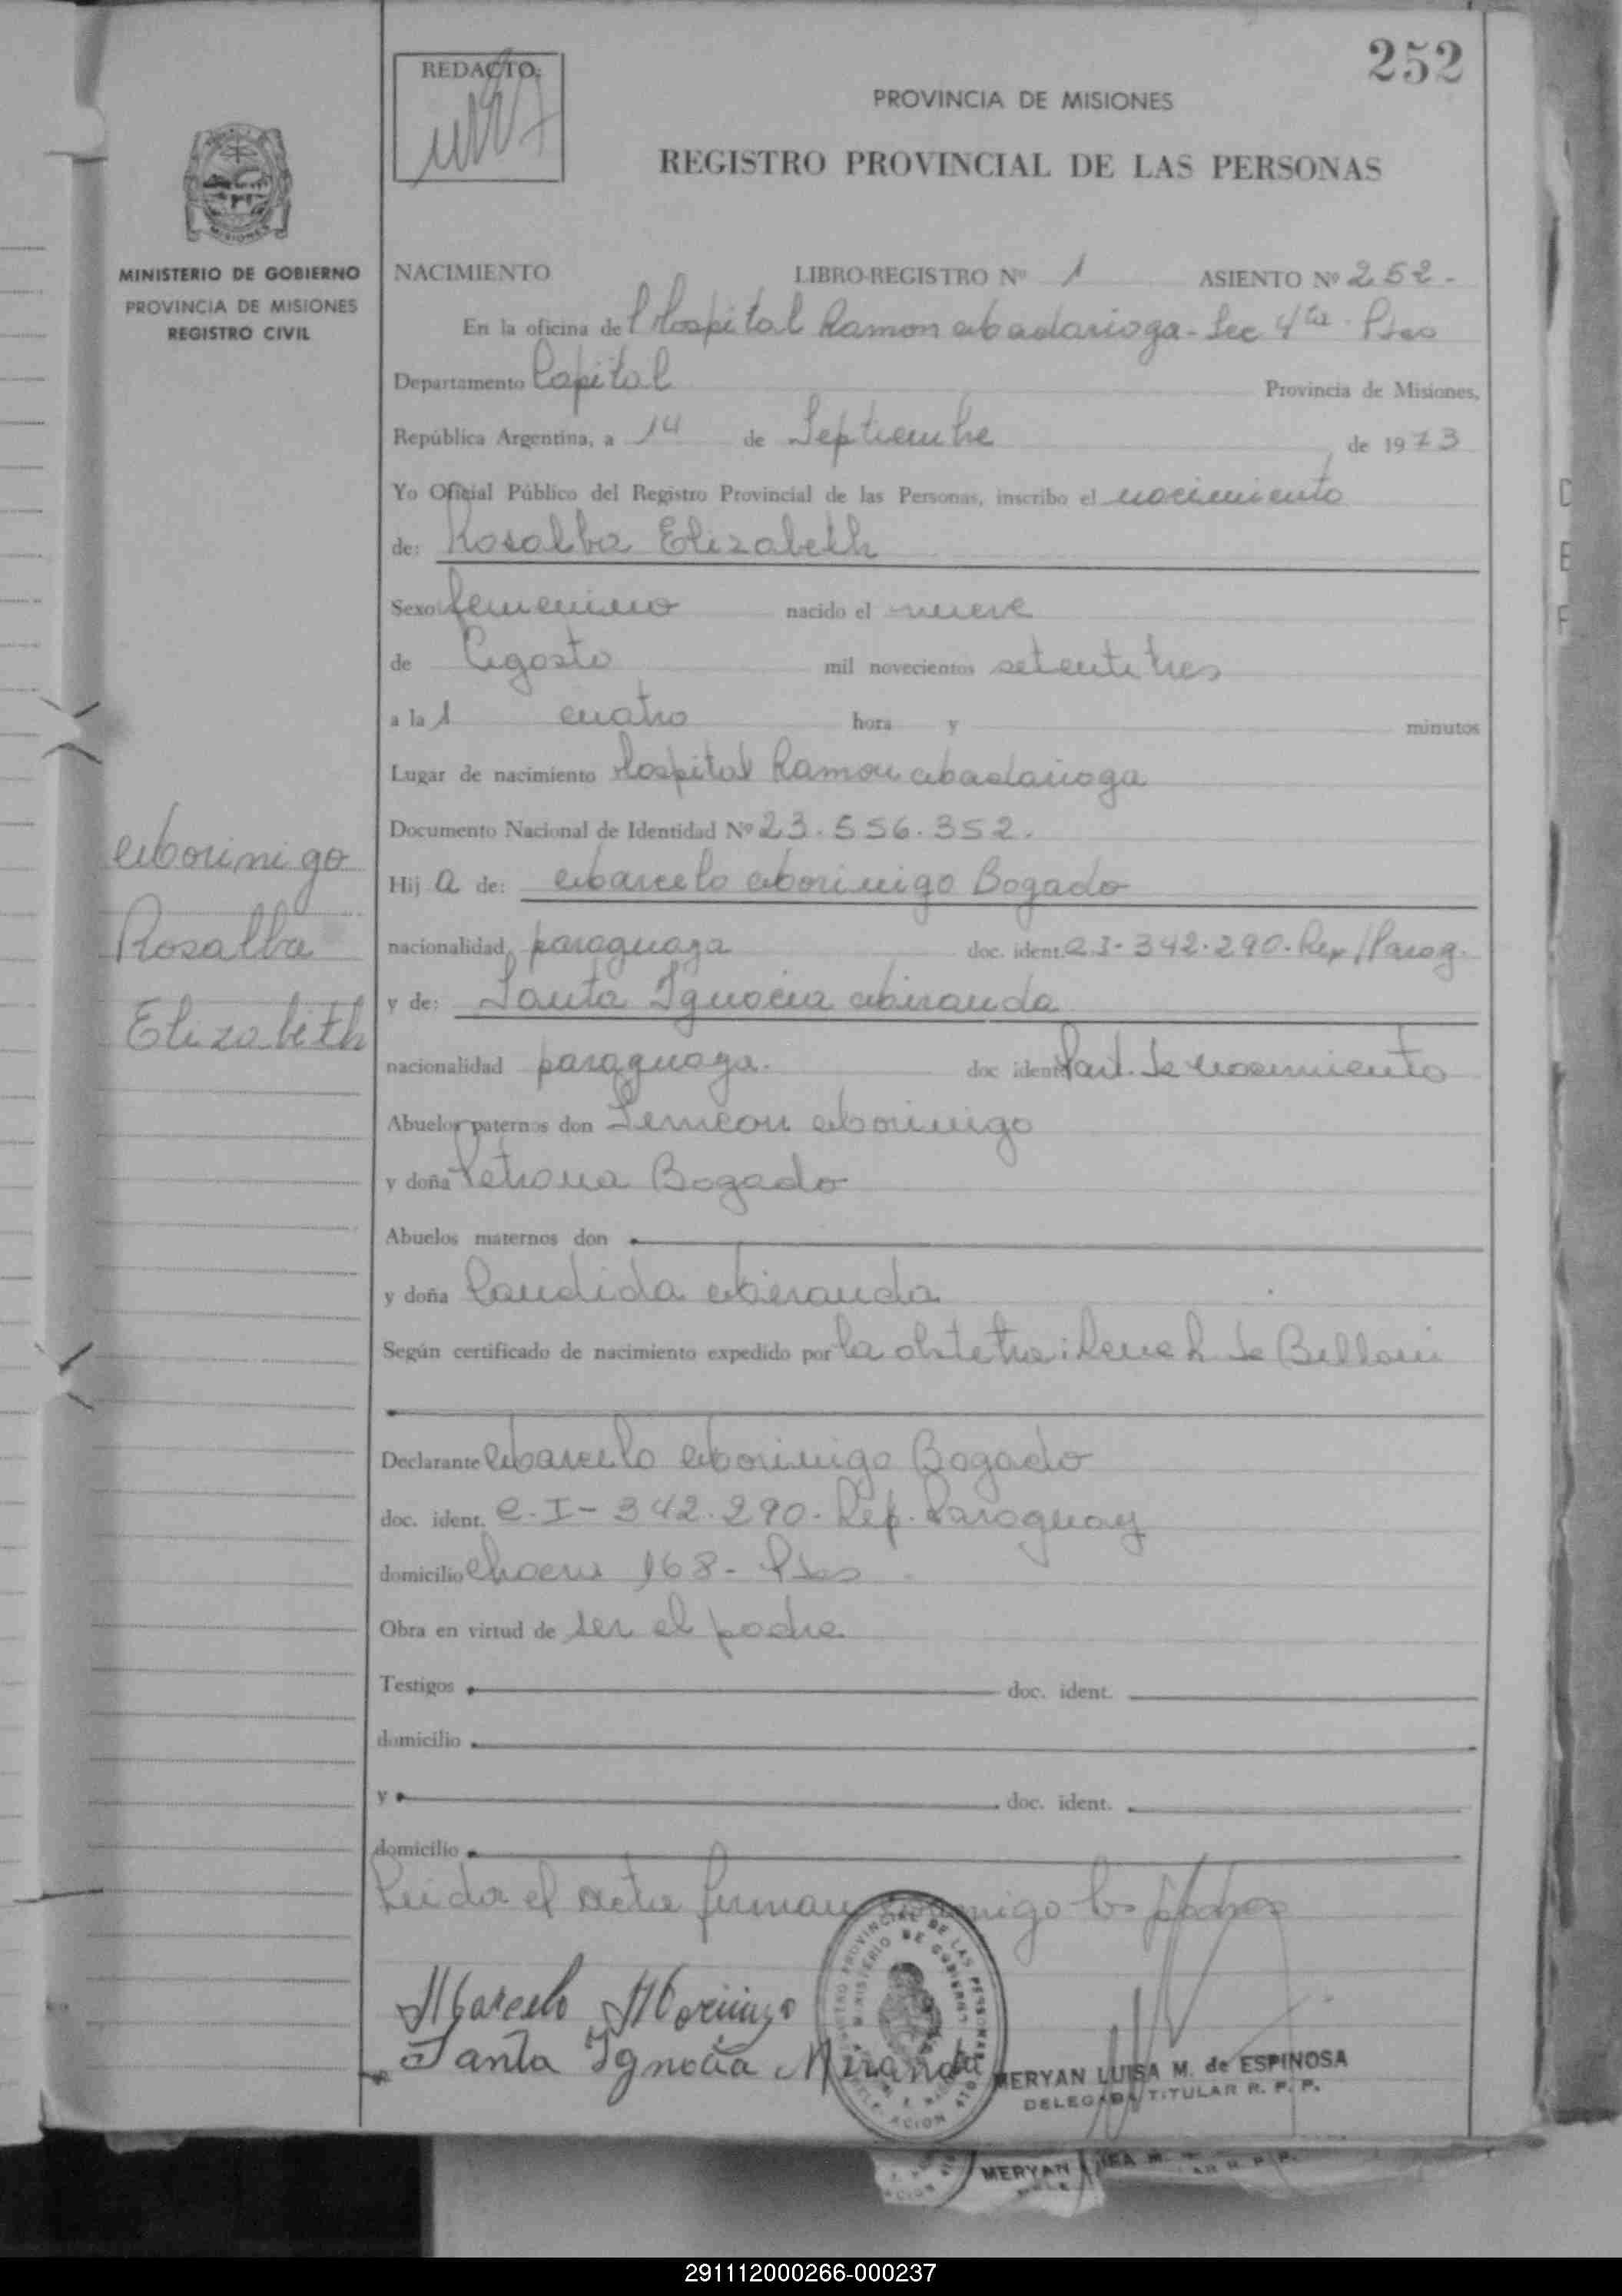 252
REDACTO:
PROVINCIA DE MISIONES
REGISTRO PROVINCIAL DE LAS PERSONAS
MISIONES
MINISTERIO DE GOBIERNO
PROVINCIA DE MISIONES
REGISTRO CIVIL
NACIMIENTO LIBRO-REGISTRO Nº 1 ASIENTO Nº 252.-
En la oficina de Hospital Ramon Madariaga - Sec 4ta - Pdas
Departamento Capital Provincia de Misiones,
República Argentina, a 14 de Septiembre de 1973
Yo Oficial Público del Registro Provincial de las Personas, inscribo el nacimiento
de: Rosalba Elizabeth
Sexo femenino nacido el nueve
de Agosto mil novecientos setentitres
a la s cuatro hora y minutos
Lugar de nacimiento Hospital Ramon Madariaga
Documento Nacional de Identidad Nº 23.556.352.
Hij a de: Marcelo Morinigo Bogado
nacionalidad paraguaya doc. ident. C.I- 342.290. Rep/Parag.
y de: Santa Ignacia Miranda
nacionalidad paraguaya. doc ident Part. de nacimiento
Abuelos paternos don Simeon Morinigo
y doña Petrona Bogado
Abuelos maternos don
y doña Candida Miranda
Según certificado de nacimiento expedido por la obstetra: de
Declarante Marcelo Morinigo Bogado
doc. ident. C.I- 342.290. Rep. Paraguay
domicilio 168 - Pdas
Obra en virtud de ser el padre
Testigos doc. ident.
domicilio
y doc. ident.
domicilio
Leida el acta firman conmigo los padres
Marcelo Morinigo
Santa Ignacia Miranda
MERYAN LUISA M. de ESPINOSA
DELEGADA TITULAR R. P. P.
Morinigo
Rosalba
Elizabeth
MERYAN
291112000266-000237